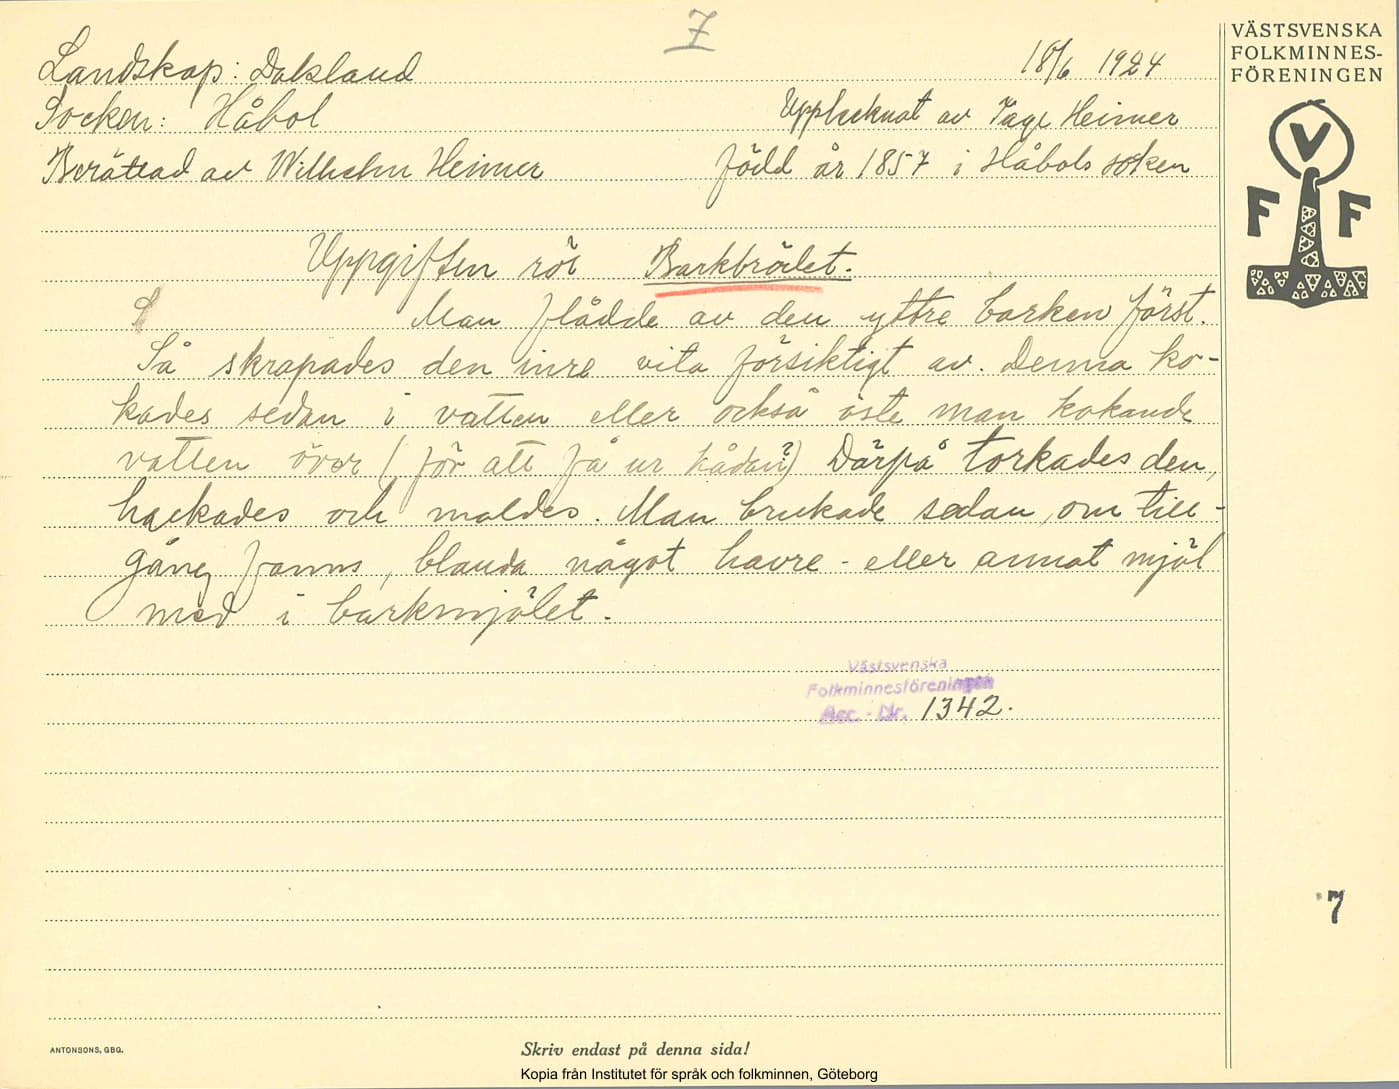 7
VÄSTSVENSKA
FOLKMINNES-
FÖRENINGEN
V
F F
Landskap: Dalsland 18/6 1924
Socken: Håbol Upptecknat av Tage Heimer
Berättad av Wilhelm Heimer född år 1857 i Håbols socken
Uppgiften rör Barkbrödet.
Man flådde av den yttre barken först.
Så skrapades den inre vita försiktigt av. Denna ko-
kades sedan i vatten eller också öste man kokande
vatten över (för att få ur kådan?) Därpå torkades den,
hackades och maldes. Man brukade sedan, om till-
gång fanns, blanda något havre- eller annat mjöl
med i barkmjölet.
Västsvenska
Folkminnesföreningen
Acc. - Nr. 1342.
7
ANTONSONS, GBG.
Skriv endast på denna sida!
Kopia från Institutet för språk och folkminnen, Göteborg